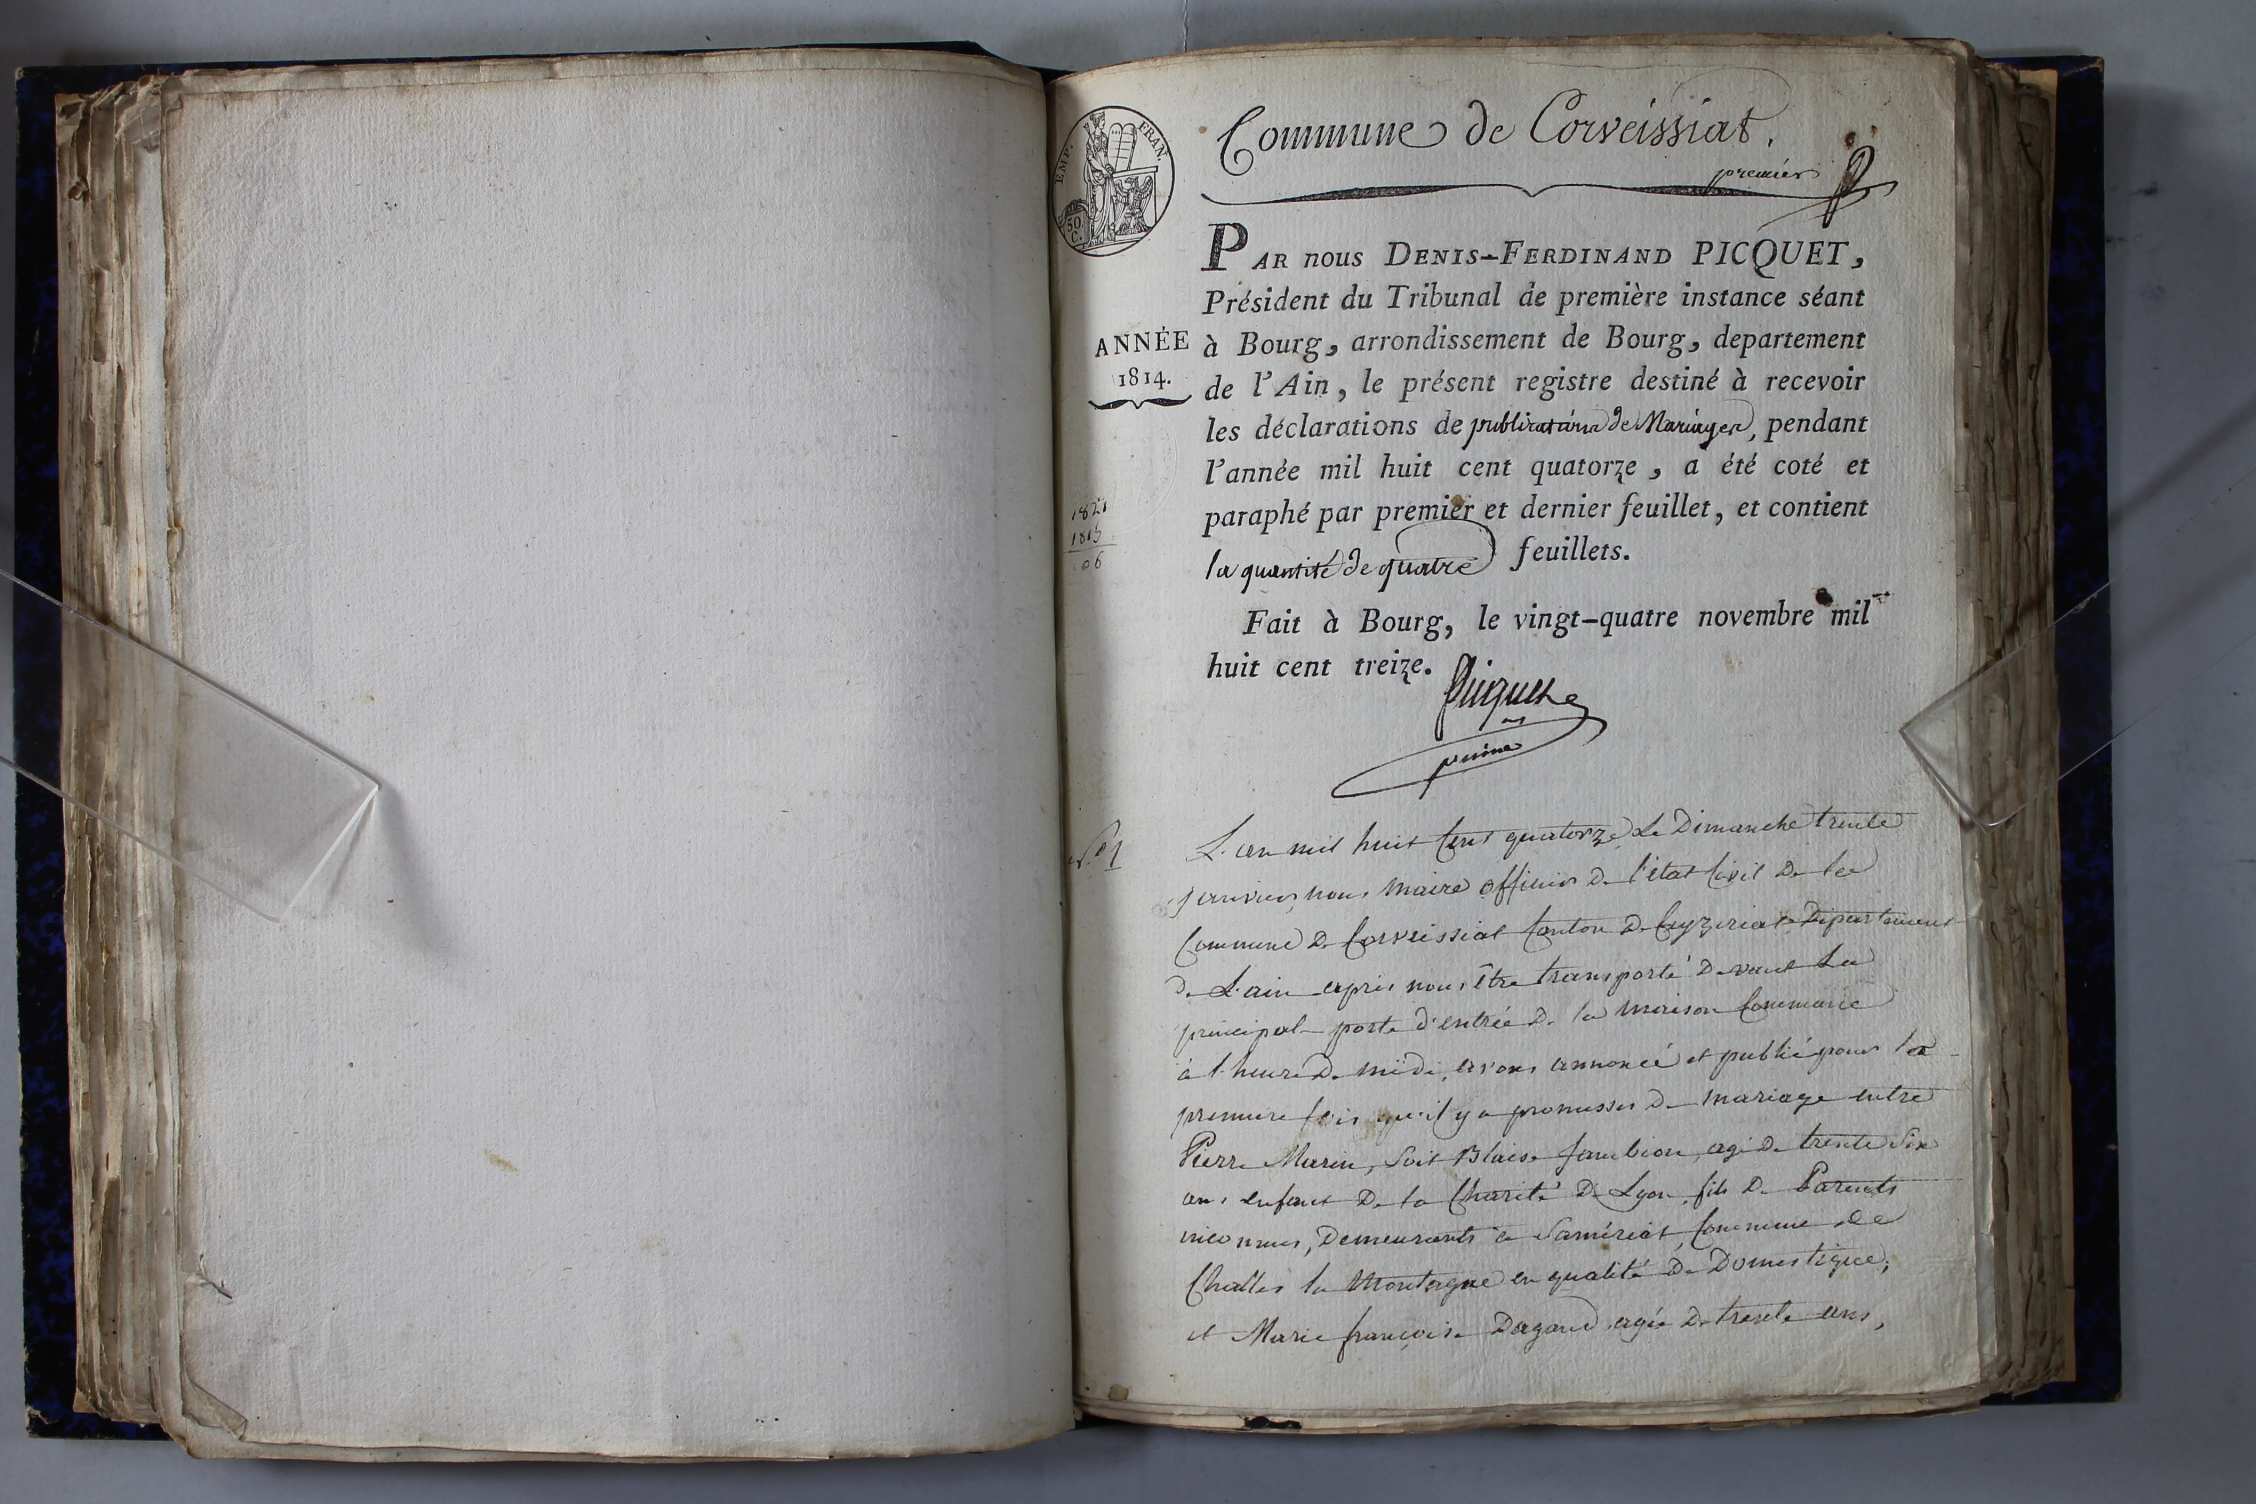 Commune de Corveissiat.
premier
EMP. FRAN.
50
C.
PAR nous DENIS-FERDINAND PICQUET,
Président du Tribunal de première instance séant
ANNÉE
1814.
à Bourg, arrondissement de Bourg, departement
de l'Ain, le présent registre destiné à recevoir
les déclarations de publications de Mariages, pendant
l'année mil huit cent quatorze, a été coté et
paraphé par premier et dernier feuillet, et contient
la quantité de quatre feuillets.
1821
1815
06
Fait à Bourg, le vingt-quatre novembre mil
huit cent treize.
Picquet
N.º 1
L'an mil huit Cent quatorze, Le Dimanche trente
janvier, nous Maire officier De l'état Civil De la
Commune De Corveissiat Canton De Ceyzeriat Département
De L'ain après nous être transporté Devant La
principal porte d'entrée De la Maison Commune
à l'heure De midi, avons annoncé et publié pour la
premiere fois qu'il y a promesses De mariage entre
Pierre Marin, Soit Blaise Jambion, agé De trente Six
ans enfant De la Charité De Lyon, fils De Parents
inconnus, Demeurants à Samériat, Commune de
Challes la Montagne en qualité De Domestique,
et Marie françoise Dagand agée De trente ans,